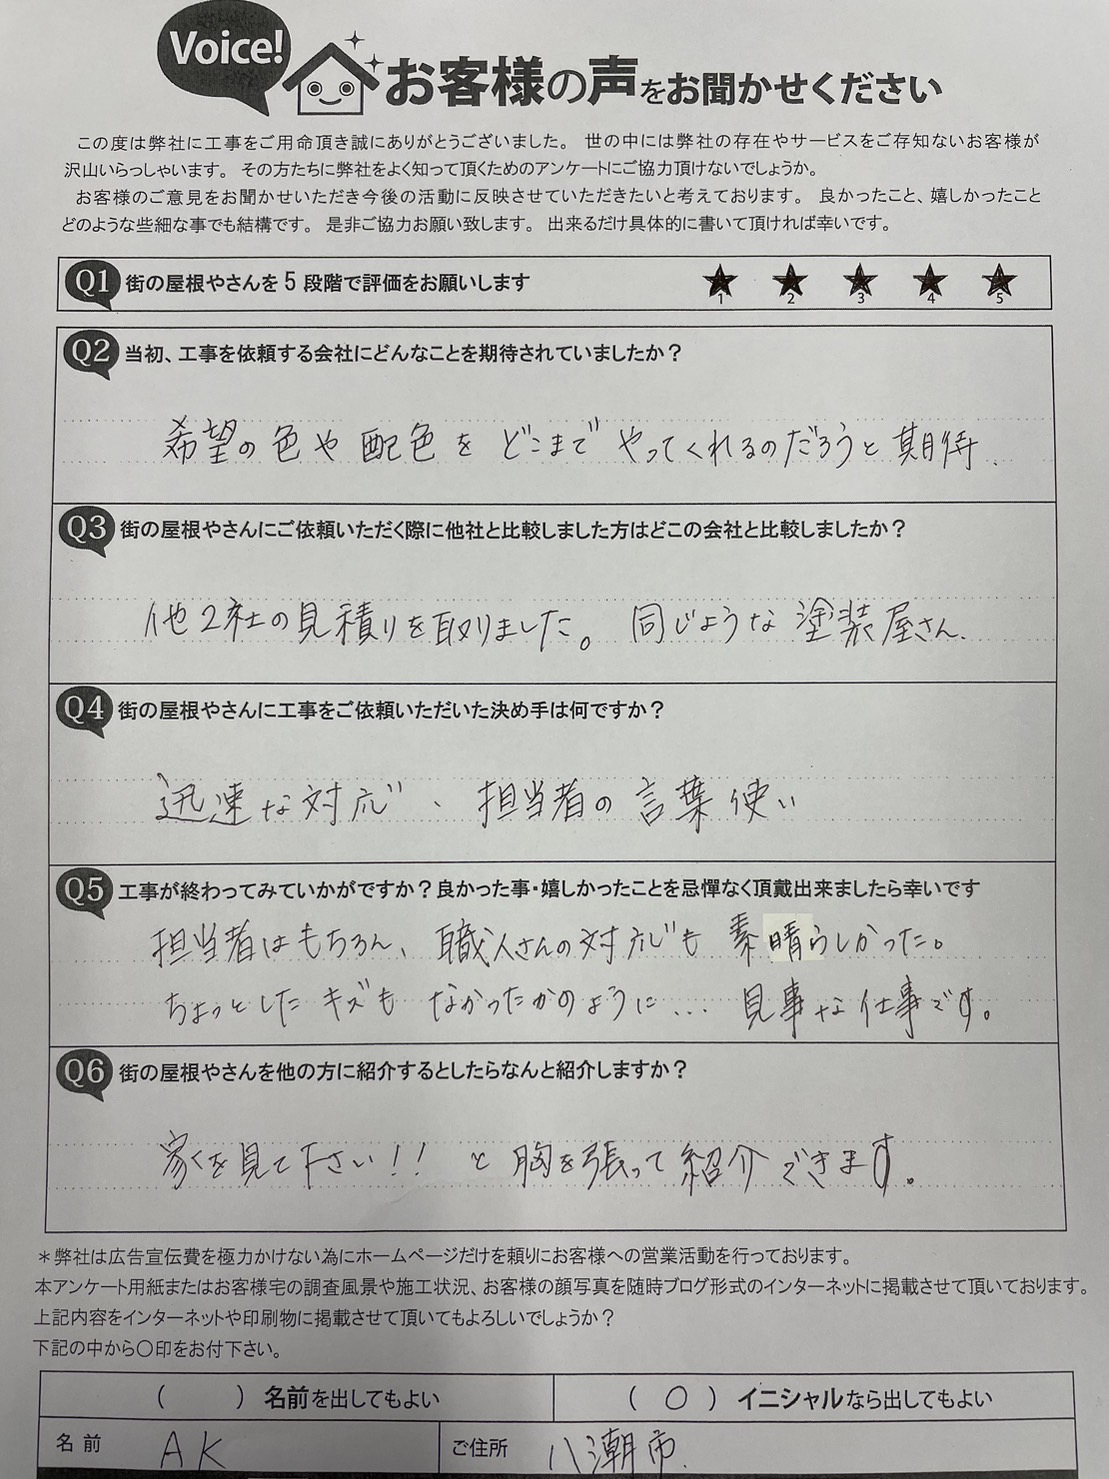 Voice!
お客様の声をお聞かせください
この度は弊社に工事をご用命頂き誠にありがとうございました。 世の中には弊社の存在やサービスをご存知ないお客様が
沢山いらっしゃいます。 その方たちに弊社をよく知って頂くためのアンケートにご協力頂けないでしょうか。
お客様のご意見をお聞かせいただき今後の活動に反映させていただきたいと考えております。 良かったこと、嬉しかったこと
どのような些細な事でも結構です。 是非ご協力お願い致します。 出来るだけ具体的に書いて頂ければ幸いです。
Q1 街の屋根やさんを5段階で評価をお願いします ★1 ★2 ★3 ★4 ★5
Q2 当初、工事を依頼する会社にどんなことを期待されていましたか？
希望の色や配色をどこまでやってくれるのだろうと期待.
Q3 街の屋根やさんにご依頼いただく際に他社と比較しました方はどこの会社と比較しましたか？
他2社の見積りを取りました。 同じような塗装屋さん.
Q4 街の屋根やさんに工事をご依頼いただいた決め手は何ですか？
迅速な対応、担当者の言葉使い
Q5 工事が終わってみていかがですか？良かった事・嬉しかったことを忌憚なく頂戴出来ましたら幸いです
担当者はもちろん、職人さんの対応も素晴らしかった。
ちょっとしたキズもなかったかのように… 見事な仕事です。
Q6 街の屋根やさんを他の方に紹介するとしたらなんと紹介しますか？
家を見て下さい!! と胸を張って紹介できます。
＊弊社は広告宣伝費を極力かけない為にホームページだけを頼りにお客様への営業活動を行っております。
本アンケート用紙またはお客様宅の調査風景や施工状況、お客様の顔写真を随時ブログ形式のインターネットに掲載させて頂いております。
上記内容をインターネットや印刷物に掲載させて頂いてもよろしいでしょうか？
下記の中から〇印をお付下さい。
（　　）名前を出してもよい （ ○ ）イニシャルなら出してもよい
名前 AK ご住所 八潮市.